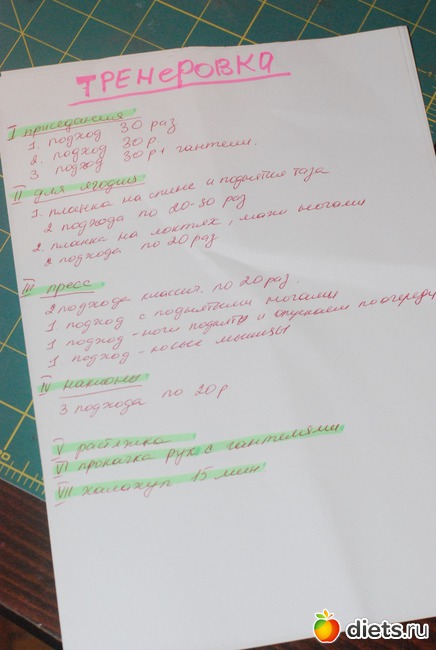 ТРЕНЕРОВКА
I приседания
1. подход 30 раз
2. подход 30 р.
3 подход 30 р + гантели.
II для ягодиц
1. планка на спине и поднятия таза
2 подхода по 20-30 раз
2. планка на локтях, махи ногами
2 подхода по 20 раз
III пресс
2 подхода классич. по 20 раз.
1 подход с поднятыми ногами
1 подход - ноги подняты и опускаем поочереди
1 подход - косые мышцы
IV наклоны
3 подхода по 20 р
V растяжка
VI прокачка рук с гантелями
VII халахуп 15 мин
diets.ru